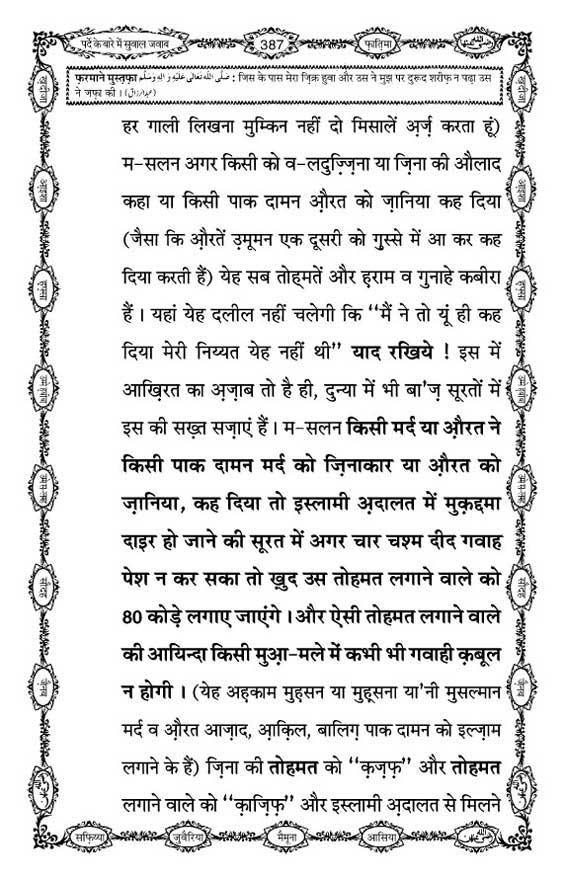 पर्दे के बारे में सुवाल जवाब
387
फ़ातिमा
फ़रमाने मुस्तफ़ा صَلَّى اللهُ تَعَالٰى عَلَيْهِ وَاٰلِهٖ وَسَلَّم : जिस के पास मेरा ज़िक्र हुवा और उस ने मुझ पर दुरूद शरीफ़ न पढ़ा उस
ने जफ़ा की । (عبدالرزاق)
हर गाली लिखना मुम्किन नहीं दो मिसालें अ़र्ज़ करता हूं)
म-सलन अगर किसी को व-लदुज़्ज़िना या ज़िना की औलाद
कहा या किसी पाक दामन औ़रत को ज़ानिया कह दिया
(जैसा कि औ़रतें उ़मूमन एक दूसरी को ग़ुस्से में आ कर कह
दिया करती हैं) येह सब तोहमतें और ह़राम व गुनाहे कबीरा
हैं । यहां येह दलील नहीं चलेगी कि ‘‘मैं ने तो यूं ही कह
दिया मेरी निय्यत येह नहीं थी’’ याद रखिये ! इस में
आख़िरत का अ़ज़ाब तो है ही, दुन्या में भी बा'ज़ सूरतों में
इस की सख़्त सज़ाएं हैं । म-सलन किसी मर्द या औ़रत ने
किसी पाक दामन मर्द को ज़िनाकार या औ़रत को
ज़ानिया, कह दिया तो इस्लामी अ़दालत में मुक़द्दमा
दाइर हो जाने की सूरत में अगर चार चश्म दीद गवाह
पेश न कर सका तो ख़ुद उस तोहमत लगाने वाले को
80 कोड़े लगाए जाएंगे । और ऐसी तोहमत लगाने वाले
की आयिन्दा किसी मुआ़-मले में कभी भी गवाही क़बूल
न होगी । (येह अह़काम मुह़सन या मुह़्सना या'नी मुसल्मान
मर्द व औ़रत आज़ाद, आ़क़िल, बालिग़ पाक दामन को इल्ज़ाम
लगाने के हैं) ज़िना की तोहमत को ‘‘क़ज़फ़’’ और तोहमत
लगाने वाले को ‘‘क़ाज़िफ़’’ और इस्लामी अ़दालत से मिलने
सफ़िय्या
जुवैरिया
मैमूना
आसिया